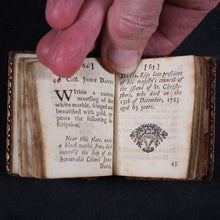 [62]
44. Coll. JOHN DAVIS.
Within a curious
mantling of the
white marble, fringed and
beautified with gold, ap-
pears the following in-
scription.
Near this place, under
a black marble stone, lies
interr'd the body of the
honourable Colonel John
Davis,
[63]
DAVIS, Esq; late president
of his majesty's council of
the island of St. Christo-
phers, who died on the
13th of December, 1725.
aged 63 years.
45.